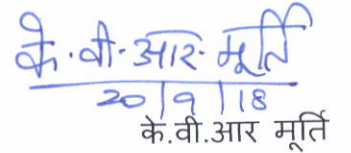 के.वी.आर. मूर्ति
20/9/18
के.वी.आर मूर्ति